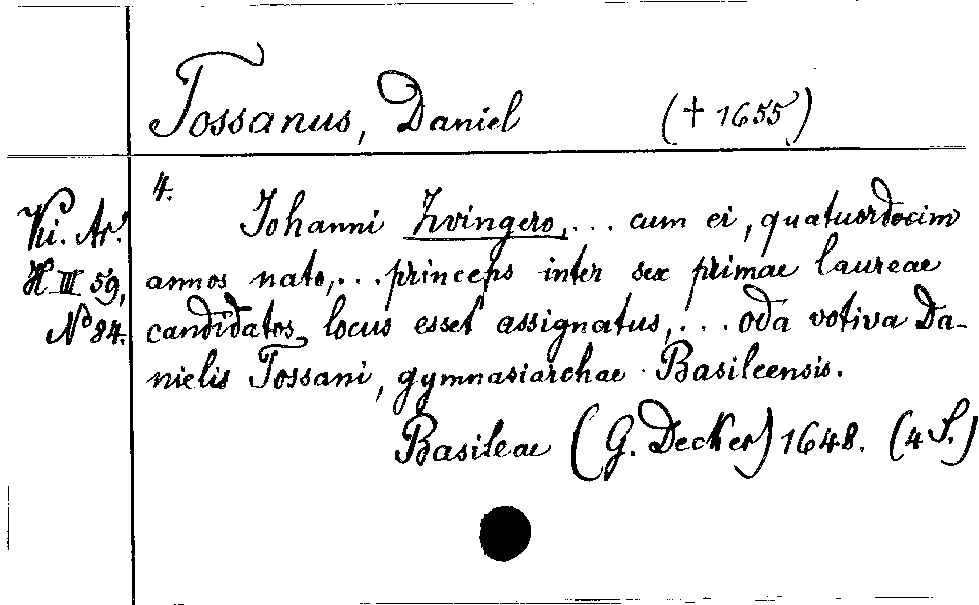 Tossanus, Daniel († 1655)
4.
Ki. Ar.
H III 59,
No 84.
Johanni Zvingero, ... cum ei, quatuordecim
annos nato, ... princeps inter sex primae laureae
candidatos locus esset assignatus, ... oda votiva Da-
nielis Tossani, gymnasiarchae Basileensis.
Basileae (G. Decker) 1648. (4 S.)